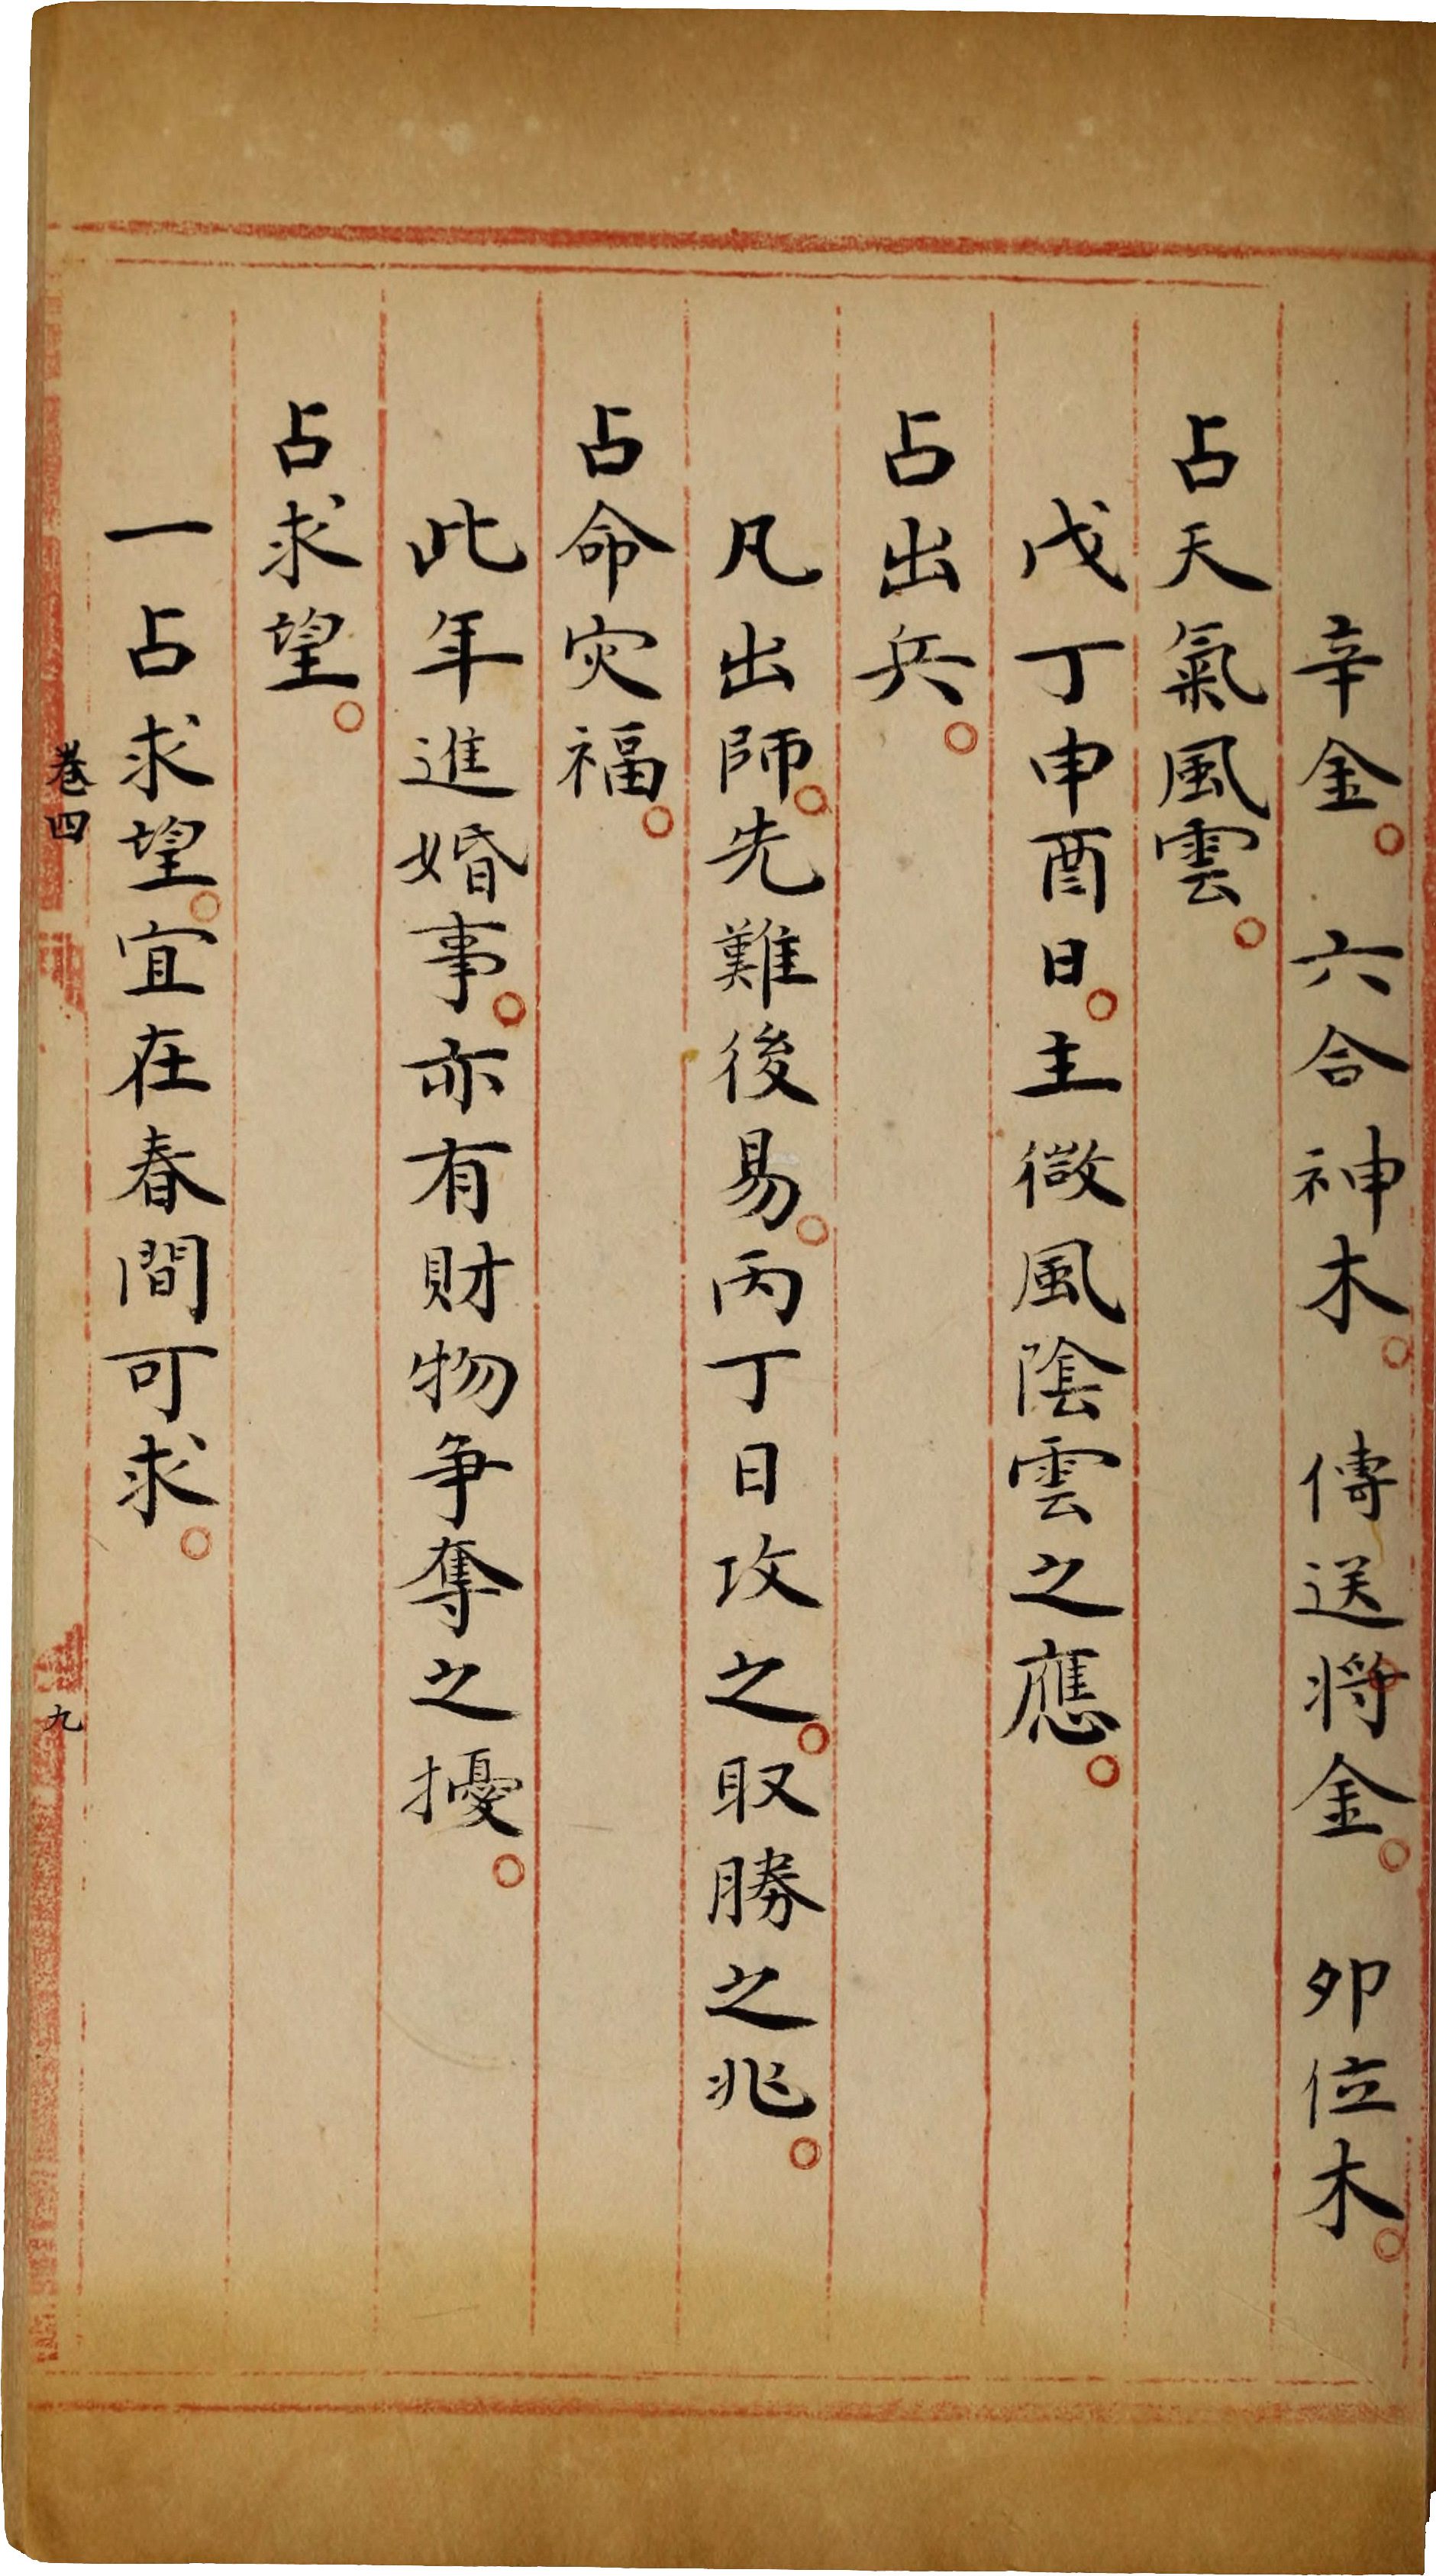 辛金。六合神木。傳送将金。夘位木。
占天氣風雲。
戊丁申酉日。主微風陰雲之應。
占出兵。
凡出師。先難後易。丙丁日攻之。取勝之兆。
占命灾福。
此年進婚事。亦有財物争奪之擾。
占求望。
一占求望。宜在春間可求。
卷四
九